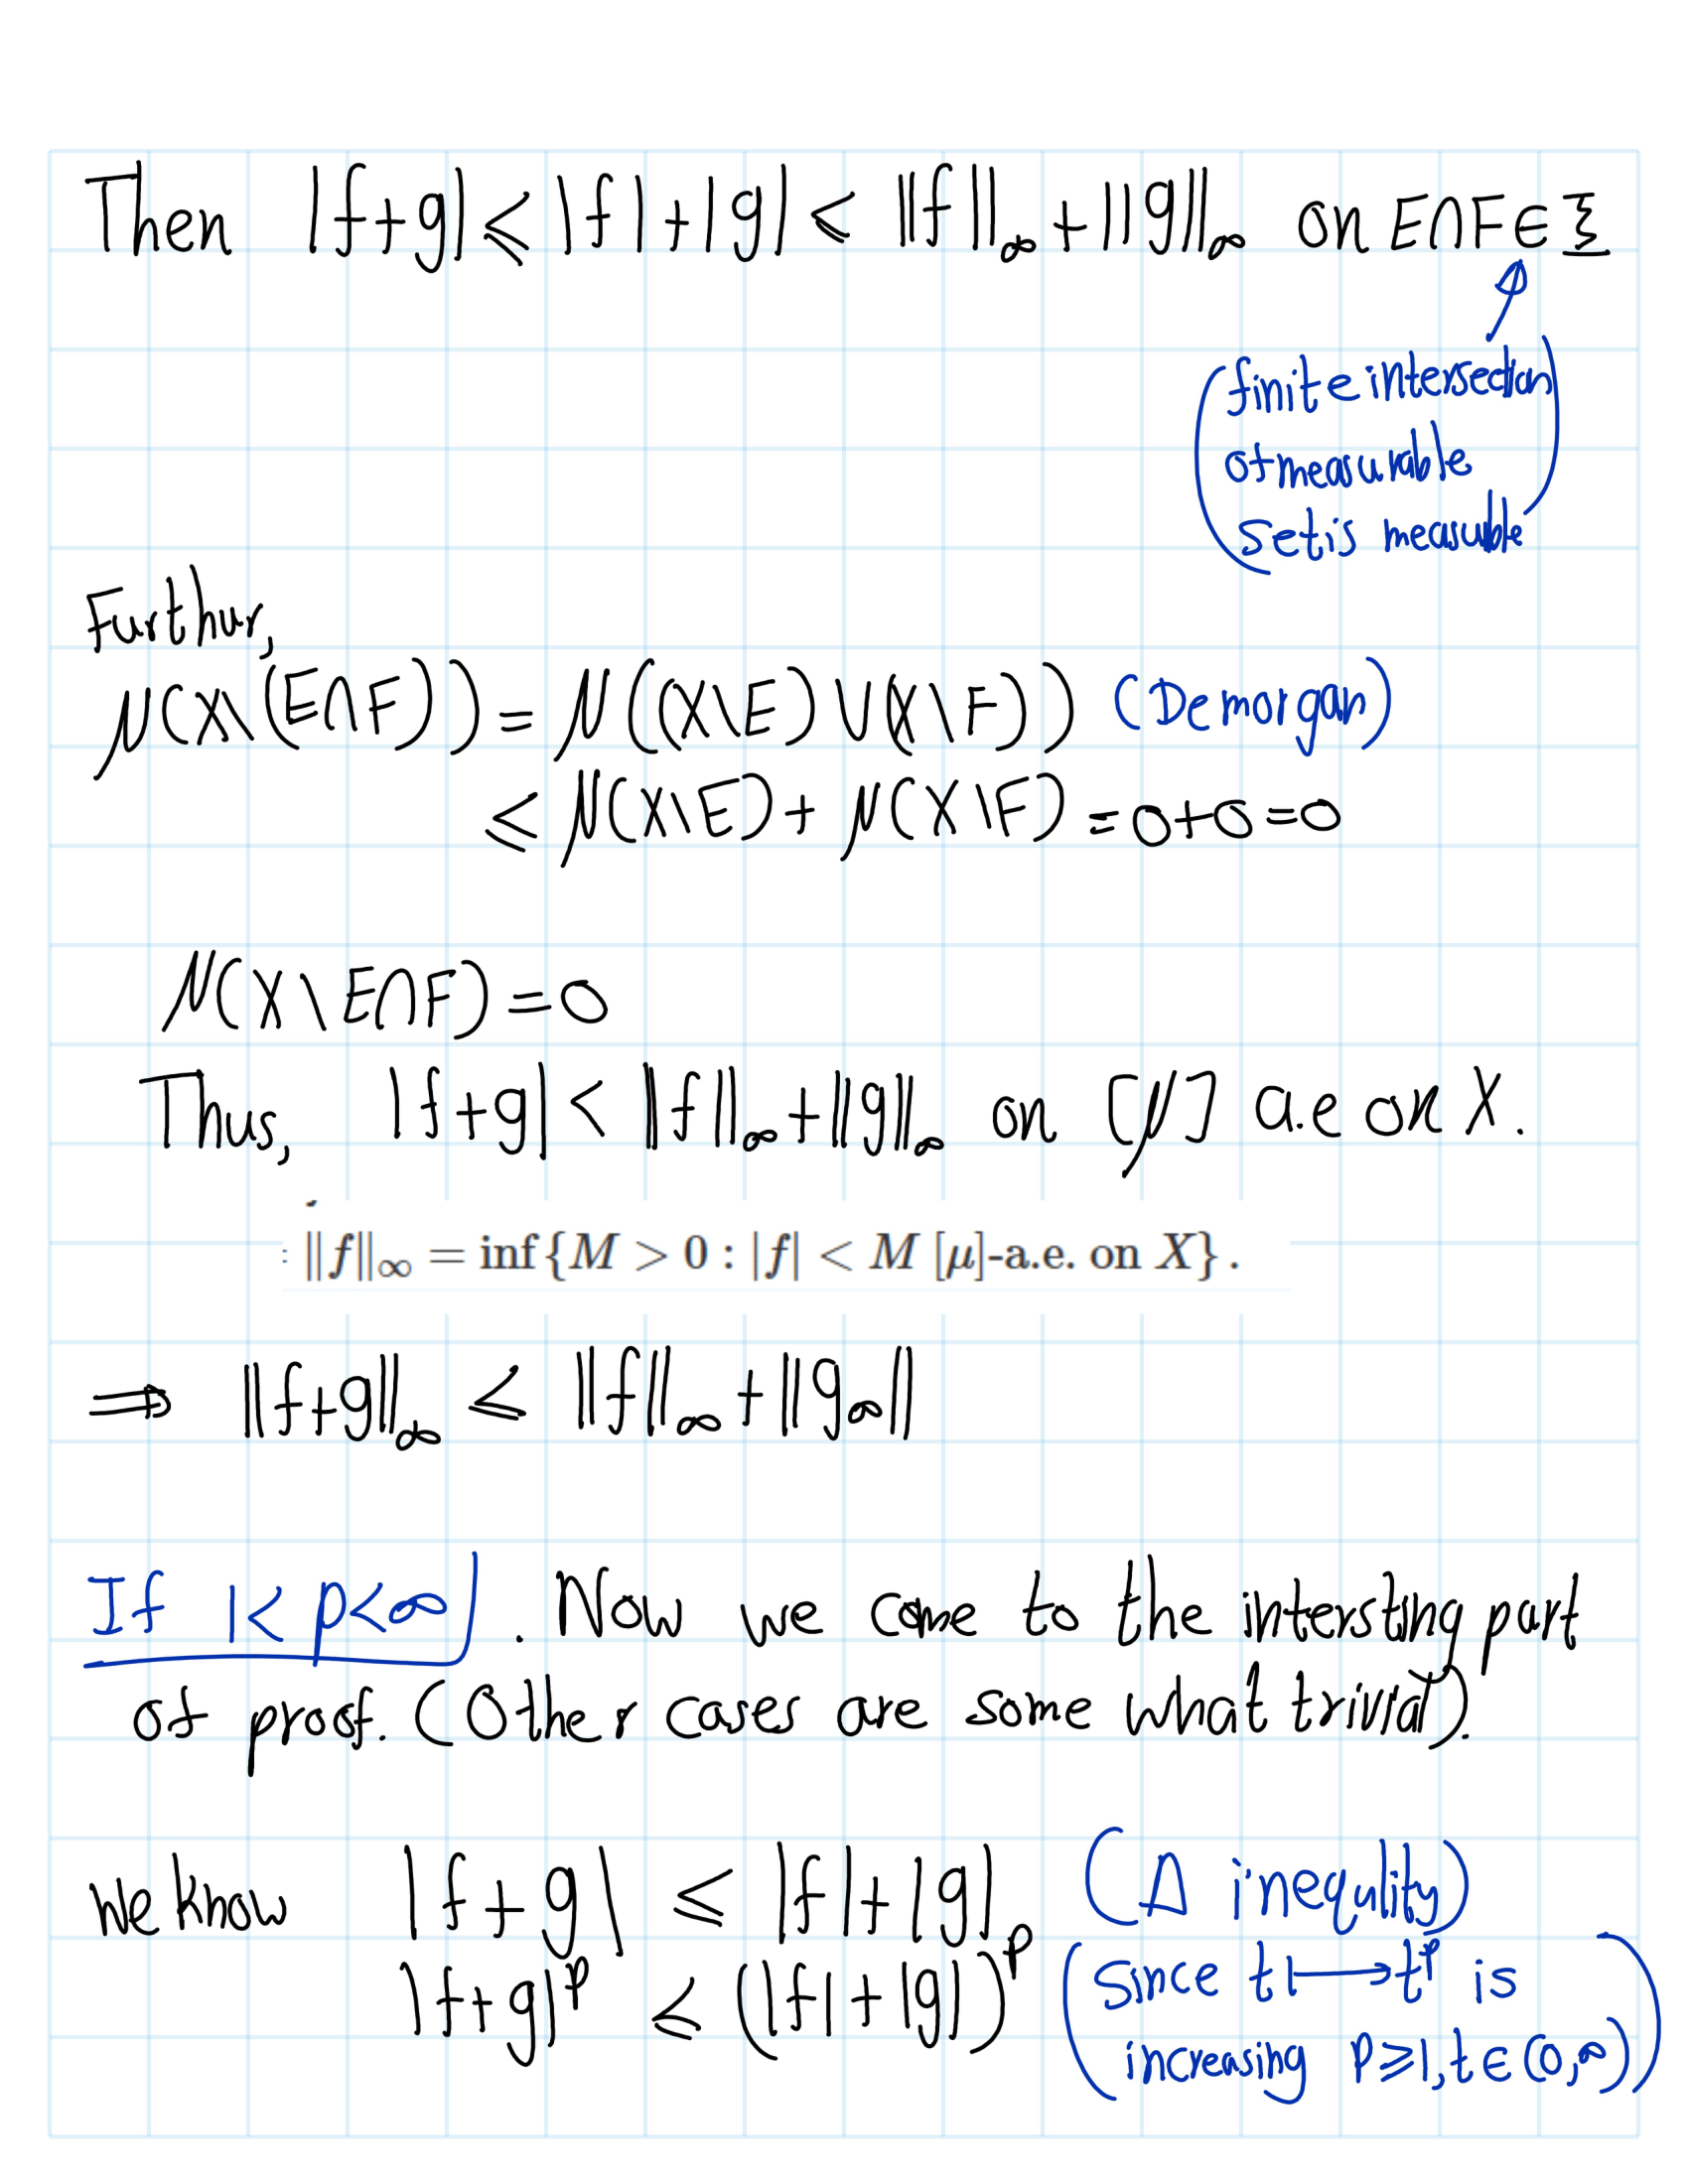 Then |f+g| ≤ |f|+|g| < ||f||∞ + ||g||∞ on E∩F∈ Σ
(finite intersection
of measurable
set is measuble)
Furthur,
μ(X\(E∩F)) = μ((X\E)∪(X\F)) (Demorgan)
≤ μ(X\E) + μ(X\F) = 0+0=0
μ(X\E∩F)=0
Thus, |f+g| < ||f||∞+||g||∞ on [μ] a.e on X.
: ‖f‖∞ = inf {M > 0 : |f| < M [μ]-a.e. on X} .
⟹ ||f+g||∞ ≤ ||f||∞+||g∞||
If 1< p<∞ . Now we come to the intersting part
of proof. (Other cases are some what trivial).
We know |f+g| ≤ |f|+|g| (Δ inequlity)
|f+g|^p ≤ (|f|+|g|)^p (Since t↦t^p is
increasing p≥1, t∈(0,∞))